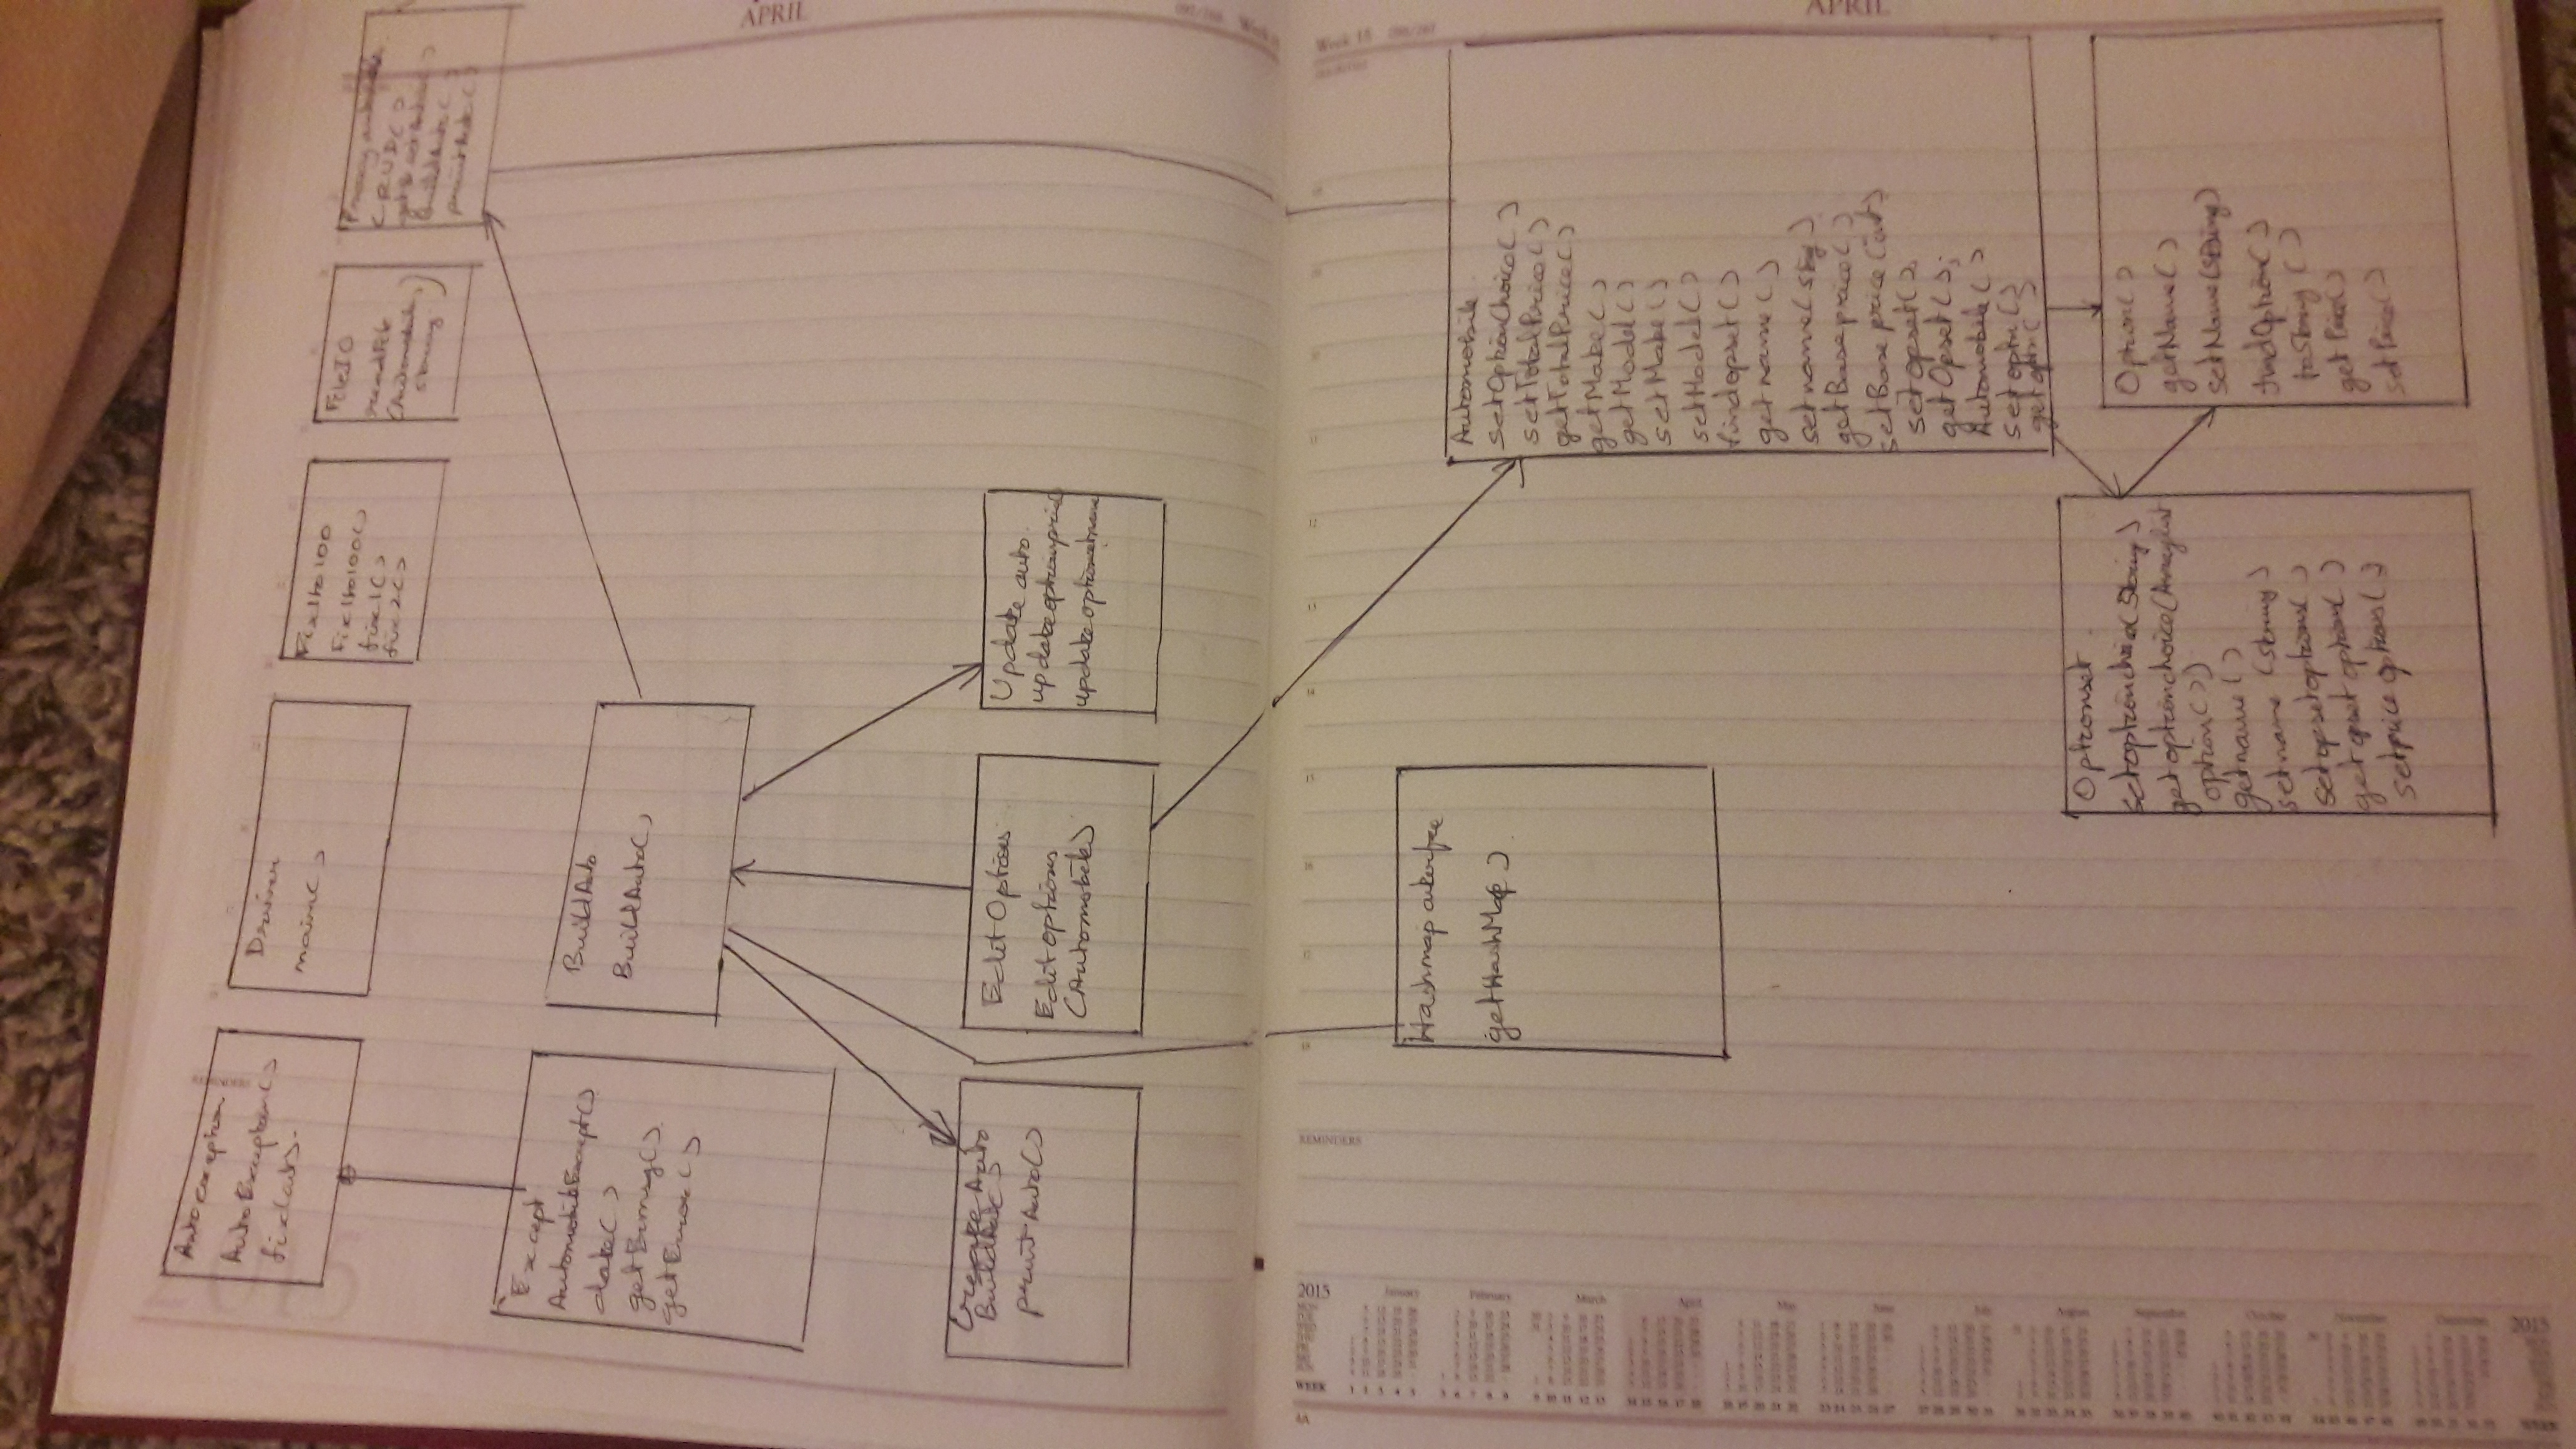 Autoexception
AutoException()
fix(auto)
Driver
main()
Fix1to100
Fix1to100()
fix1()
fix2()
FileIO
readFile
(Automobile,
string)
Proxy
CRUD()
BuildAuto()
printAuto()
Except
AutomobileExcept()
date()
getErrmsg()
getError()
BuildAuto
BuildAuto()
APRIL
Create Auto
BuildAuto()
printAuto()
EditOptions
Editoptions
(Automobile)
Update auto
updateoptionprice
updateoptionsetname
2015
WEEK
REMINDERS
Hashmap interface
getHashMap()
Automobile
setOptionChoice()
setTotalPrice()
getTotalPrice()
getMake()
getModel()
setMake()
setModel()
findopset()
getname()
setname(
getBaseprice()
setBaseprice(int)
setopset()
getOpset();
Automobile()
setoptn()
getoptn()
APRIL
Optionset
setoptionchoice(String)
getoptionchoice(Arraylist
option())
getname()
setname (string)
setopsetoptions()
getopset option()
setprice options()
Option()
getName()
setName(string)
findOption()
toString ()
getPrice()
setPrice()
2015
WEEK